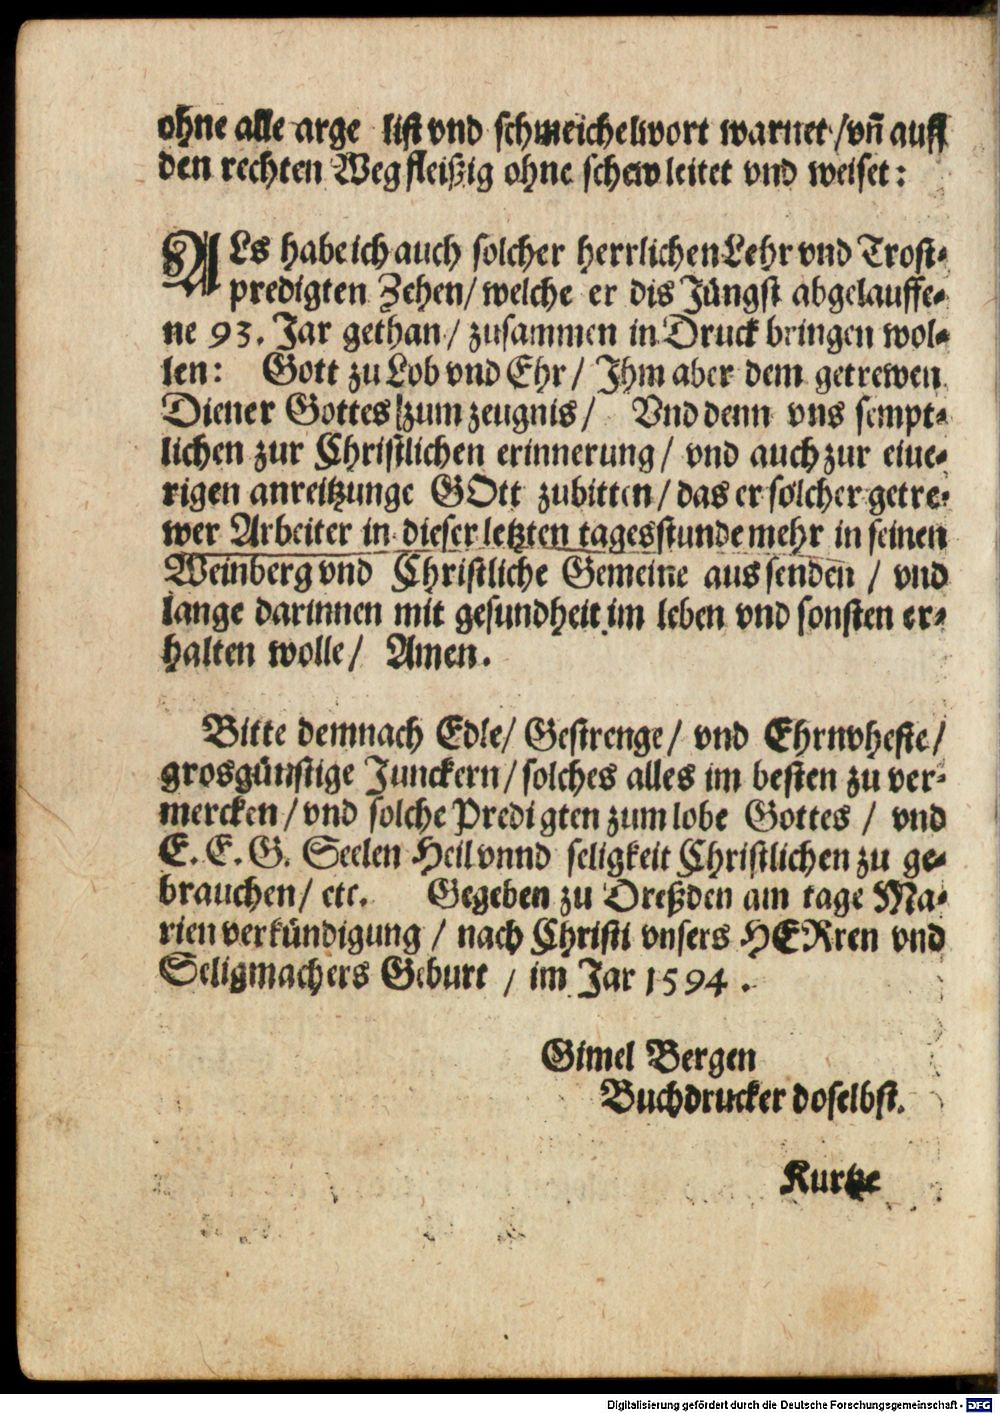 ohne alle arge list vnd schmeichelwort warnet/vñ auff
den rechten Weg fleißig ohne schew leitet vnd weiset:
ALs habe ich auch solcher herrlichen Lehr vnd Trost-
predigten Zehen/ welche er dis Jüngst abgelauffe-
ne 93. Jar gethan/ zusammen in Druck bringen wol-
len: Gott zu Lob vnd Ehr/ Ihm aber dem getrewen
Diener Gottes zum zeugnis/ Vnd denn vns sempt-
lichen zur Christlichen erinnerung/ vnd auch zur eiue-
rigen anreitzunge GOtt zubitten/ das er solcher getre-
wer Arbeiter in dieser letzten tagesstunde mehr in seinen
Weinberg vnd Christliche Gemeine aus senden / vnd
lange darinnen mit gesundheit im leben vnd sonsten er-
halten wolle/ Amen.
Bitte demnach Edle/ Gestrenge/ vnd Ehrnvheste/
grosgünstige Junckern/ solches alles im besten zu ver-
mercken/ vnd solche Predigten zum lobe Gottes / vnd
E. E. G. Seelen Heil vnnd seligkeit Christlichen zu ge-
brauchen/ etc. Gegeben zu Dreßden am tage Ma-
rien verkündigung / nach Christi vnsers HERren vnd
Seligmachers Geburt / im Jar 1594.
Gimel Bergen
Buchdrucker doselbst.
Kurtze
Digitalisierung gefördert durch die Deutsche Forschungsgemeinschaft - DFG